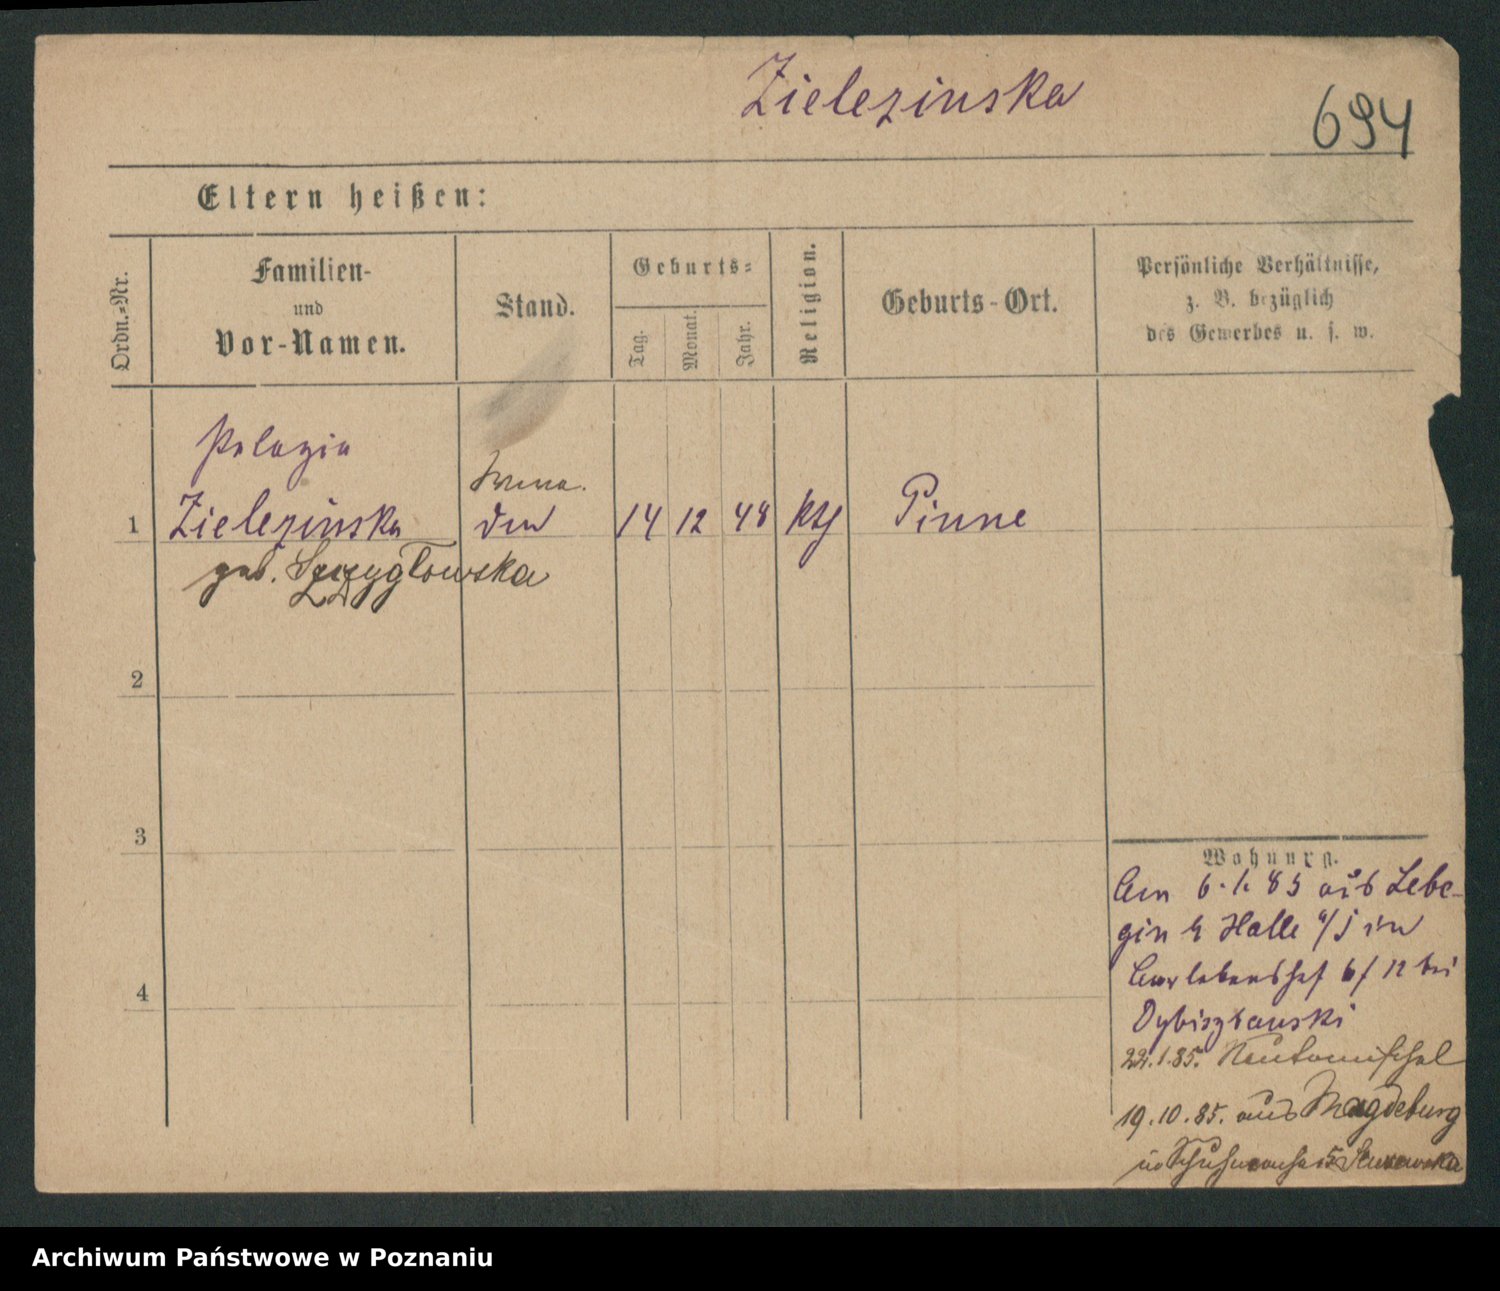 Zielezinska
694
Eltern heißen:
Ordn.-Nr.
Familien-
und
Vor-Namen.
Stand.
Geburts-
Tag.
Monat.
Jahr.
Religion.
Geburts-Ort.
Persönliche Verhältnisse,
z. B. bezüglich
des Gewerbes u. s. w.
Pelagia
1 Zielezinska 14 12 48 kth Pinne
geb. Szczygłowska
2
3
4
Wohnung.
Am 6.1.85 aus Lebe-
gin b Halle a/S in
6/12 bei
Dybizbanski
22.1.85. Neutomischel
19.10.85. aus Magdeburg
in
Archiwum Państwowe w Poznaniu